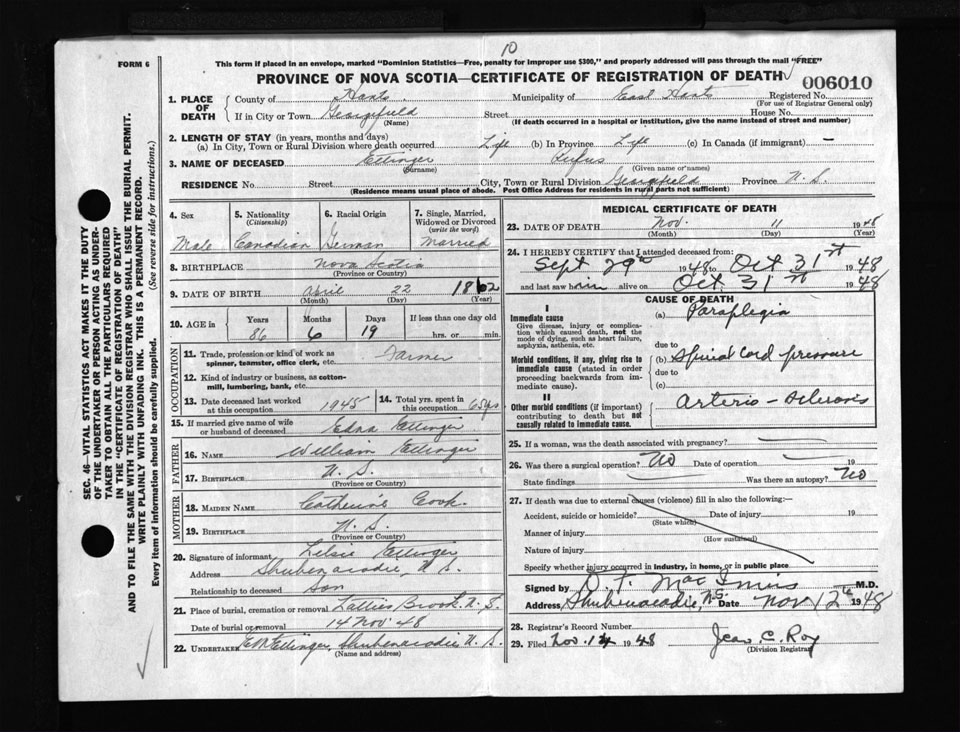 10
FORM 6
This form if placed in an envelope, marked "Dominion Statistics—Free, penalty for improper use $300," and properly addressed will pass through the mail "FREE"
PROVINCE OF NOVA SCOTIA—CERTIFICATE OF REGISTRATION OF DEATH
006010
SEC. 46—VITAL STATISTICS ACT MAKES IT THE DUTY
OF THE UNDERTAKER OR PERSON ACTING AS UNDER-
TAKER TO OBTAIN ALL THE PARTICULARS REQUIRED
IN THE "CERTIFICATE OF REGISTRATION OF DEATH"
AND TO FILE THE SAME WITH THE DIVISION REGISTRAR WHO SHALL ISSUE THE BURIAL PERMIT.
WRITE PLAINLY WITH UNFADING INK. THIS IS A PERMANENT RECORD.
Every item of information should be carefully supplied. (See reverse side for instructions.)
1. PLACE OF DEATH County of Hants Municipality of East Hants Registered No.
(For use of Registrar General only)
If in City or Town Georgefield Street House No.
(Name) (If death occurred in a hospital or institution, give the name instead of street and number)
2. LENGTH OF STAY (in years, months and days)
(a) In City, Town or Rural Division where death occurred Life (b) In Province Life (c) In Canada (if immigrant) —
3. NAME OF DECEASED Ettinger Rufus
(Surname) (Given name or names)
RESIDENCE No. Street City, Town or Rural Division Georgefield Province N.S.
(Residence means usual place of abode. Post Office Address for residents in rural parts not sufficient)
4. Sex 5. Nationality (Citizenship) 6. Racial Origin 7. Single, Married, Widowed or Divorced (write the word)
Male Canadian German Married
8. BIRTHPLACE Nova Scotia
(Province or Country)
9. DATE OF BIRTH April 22 1862
(Month) (Day) (Year)
10. AGE in Years Months Days If less than one day old
86 6 19 hrs. or min.
OCCUPATION
11. Trade, profession or kind of work as spinner, teamster, office clerk, etc. Farmer
12. Kind of industry or business, as cotton-mill, lumbering, bank, etc.
13. Date deceased last worked at this occupation 1945 14. Total yrs. spent in this occupation 65 yrs
15. If married give name of wife or husband of deceased Edna Ettinger
FATHER
16. NAME William Ettinger
17. BIRTHPLACE N. S.
(Province or Country)
MOTHER
18. MAIDEN NAME Catherine Cook
19. BIRTHPLACE N. S.
(Province or Country)
20. Signature of informant Ettinger
Address Shubenacadie, N. S.
Relationship to deceased Son
21. Place of burial, cremation or removal Latties Brook, N. S.
Date of burial or removal 14 Nov. 48
22. UNDERTAKER Ettinger, Shubenacadie N. S.
(Name and address)
MEDICAL CERTIFICATE OF DEATH
23. DATE OF DEATH Nov. 11 1948
(Month) (Day) (Year)
24. I HEREBY CERTIFY that I attended deceased from:
Sept 29th 1948 to Oct 31st 1948
and last saw him alive on Oct. 31st 1948
CAUSE OF DEATH
I
Immediate cause (a) Paraplegia
Give disease, injury or complication which caused death, not the mode of dying, such as heart failure, asphyxia, asthenia, etc.
due to
Morbid conditions, if any, giving rise to immediate cause (stated in order proceeding backwards from immediate cause). (b) Spinal Cord pressure
due to
(c)
II
Other morbid conditions (if important) contributing to death but not causally related to immediate cause. Arterio-Sclerosis
25. If a woman, was the death associated with pregnancy?
26. Was there a surgical operation? No Date of operation 19
State findings Was there an autopsy? No
27. If death was due to external causes (violence) fill in also the following:—
Accident, suicide or homicide? Date of injury 19
(State which)
Manner of injury
(How sustained)
Nature of injury
Specify whether injury occurred in industry, in home, or in public place
Signed by D. F. MacInnis M.D.
Address Shubenacadie, N.S. Date Nov 12th 1948
28. Registrar's Record Number
29. Filed Nov. 14 1948 Jean C. Roy
(Division Registrar)